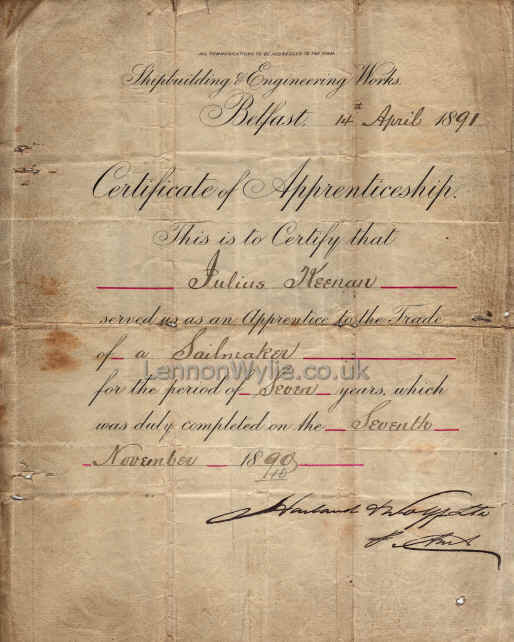 ALL COMMUNICATIONS TO BE ADDRESSED TO THE FIRM.
Shipbuilding & Engineering Works.
Belfast. 14th April 1891
Certificate of Apprenticeship.
This is to Certify that
Julius Keenan
served us as an Apprentice to the Trade
of a Sailmaker
LennonWylie.co.uk
for the period of Seven years, which
was duly completed on the Seventh
November 1890
Harland & Wolff Ltd